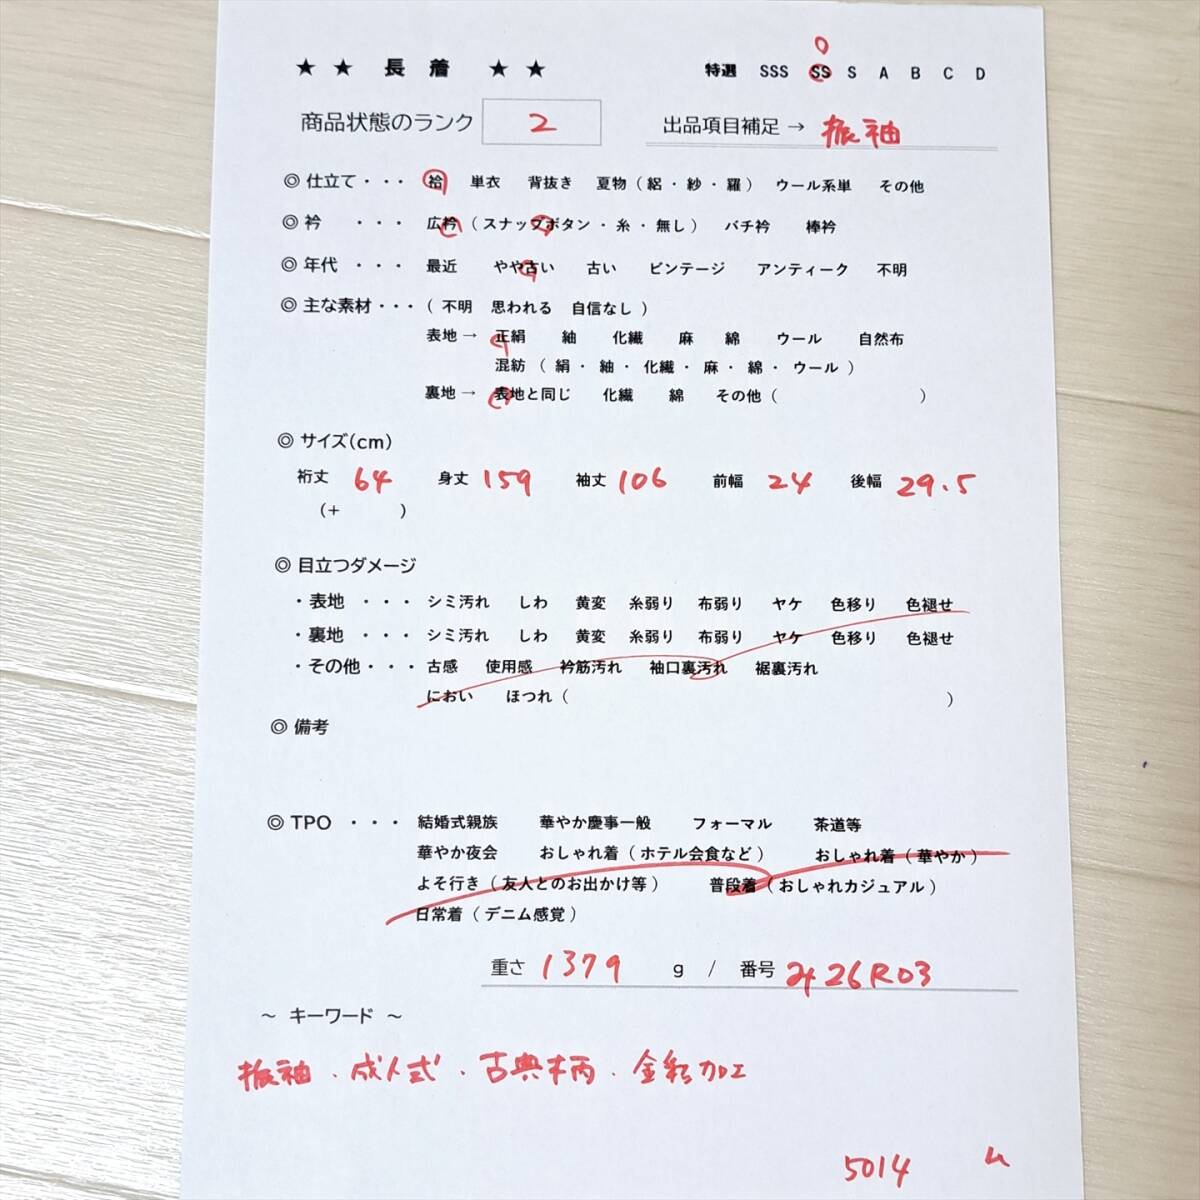 ★ ★ 長 着 ★ ★ 特選 SSS SS S A B C D
商品状態のランク 2 出品項目補足 → 振袖
◎ 仕立て・・・ 袷 単衣 背抜き 夏物 ( 絽 ・ 紗 ・ 羅 ) ウール系単 その他
◎ 衿 ・・・ 広衿 ( スナップボタン ・ 糸 ・ 無し ) バチ衿 棒衿
◎ 年代 ・・・ 最近 やや古い 古い ビンテージ アンティーク 不明
◎ 主な素材・・・ ( 不明 思われる 自信なし )
表地 → 正絹 紬 化繊 麻 綿 ウール 自然布
混紡 ( 絹 ・ 紬 ・ 化繊 ・ 麻 ・ 綿 ・ ウール )
裏地 → 表地と同じ 化繊 綿 その他 ( )
◎ サイズ(cm)
裄丈 64 身丈 159 袖丈 106 前幅 24 後幅 29.5
(+ )
◎ 目立つダメージ
・表地 ・・・ シミ汚れ しわ 黄変 糸弱り 布弱り ヤケ 色移り 色褪せ
・裏地 ・・・ シミ汚れ しわ 黄変 糸弱り 布弱り ヤケ 色移り 色褪せ
・その他・・・ 古感 使用感 衿筋汚れ 袖口裏汚れ 裾裏汚れ
におい ほつれ ( )
◎ 備考
◎ TPO ・・・ 結婚式親族 華やか慶事一般 フォーマル 茶道等
華やか夜会 おしゃれ着 ( ホテル会食など ) おしゃれ着 ( 華やか )
よそ行き ( 友人とのお出かけ等 ) 普段着 ( おしゃれカジュアル )
日常着 ( デニム感覚 )
重さ 1379 g / 番号 み26R03
～ キーワード ～
振袖・成人式・古典柄・金彩加工
5014